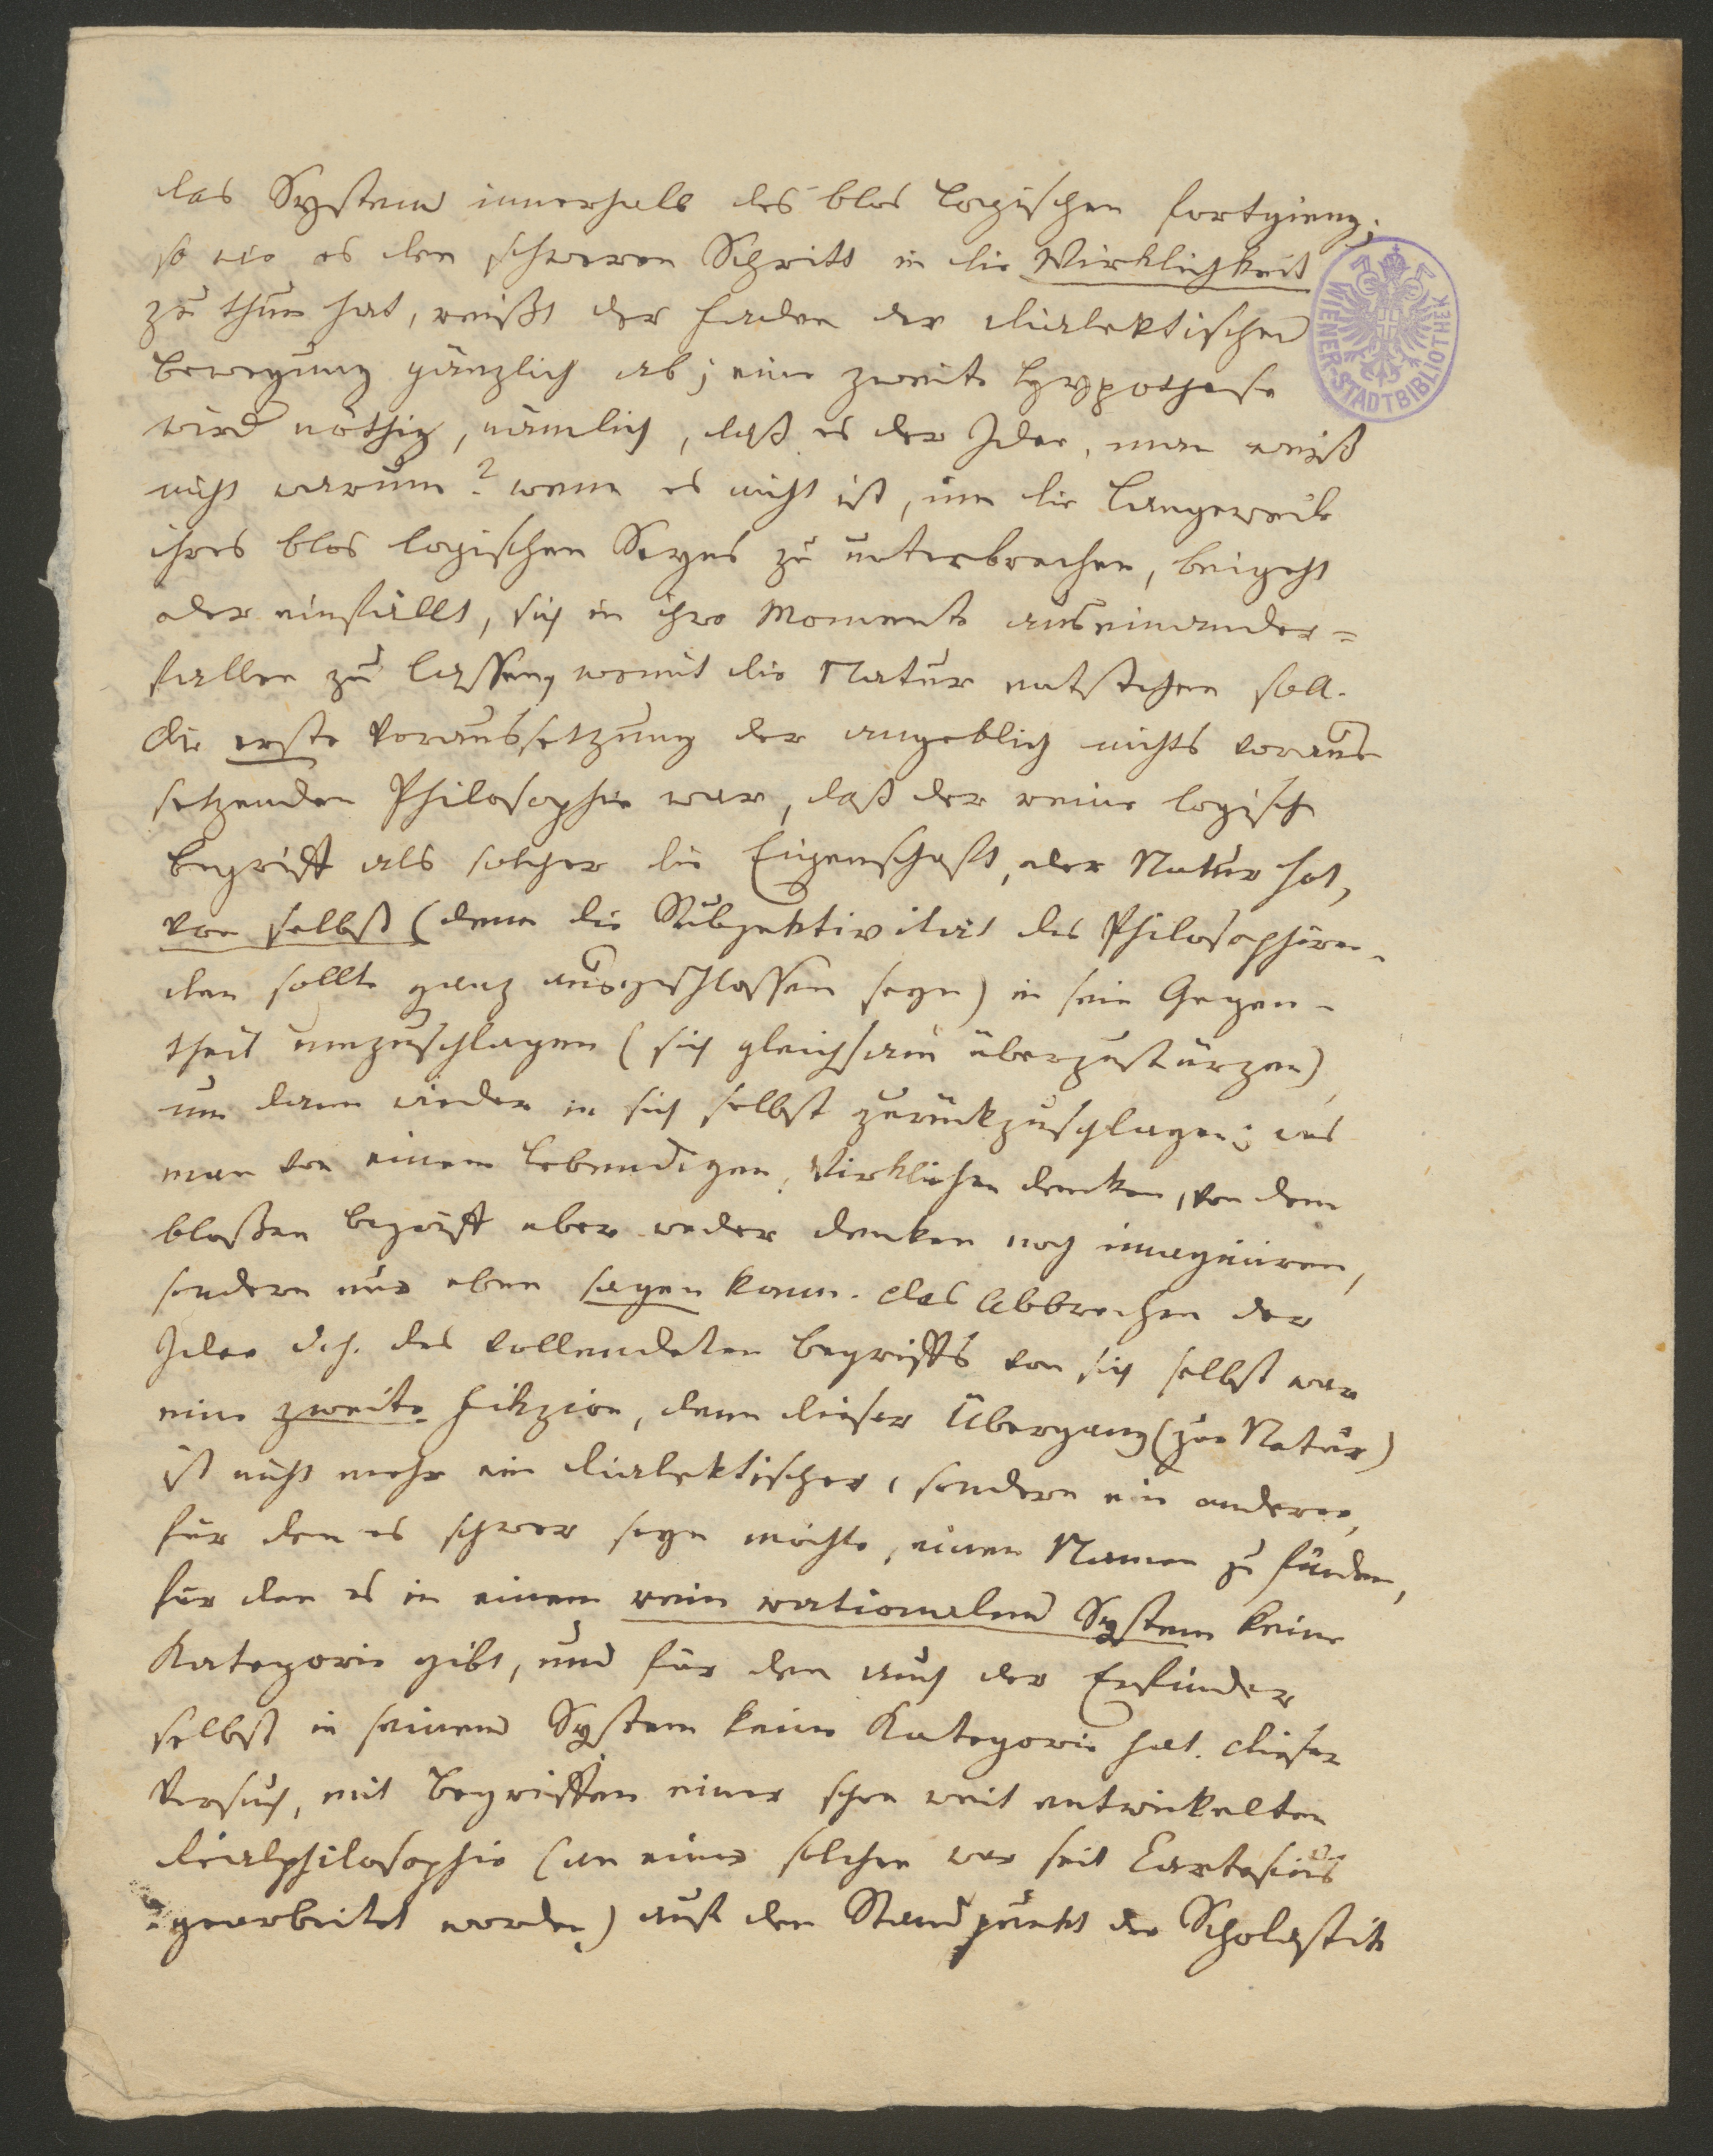 das System innerhalb des blos logischen fortgieng;
so wie es den schweren Schritt in die Wirklichkeit
zu thun hat, reißt der Faden der dialektischen
Bewegung gänzlich ab; eine zweite Hypothese
wird nöthig, nämlich, daß es der Idee, man weiß
nicht warum? wenn es nicht ist, um die Langeweile
ihres blos logischen Seyns zu unterbrechen, beigeht
oder einfällt, sich in ihre Momente auseinander=
fallen zu lassen, womit die Natur entstehen soll.
Die erste Voraussetzung der angeblich nichts voraus
setzenden Philosophie war, daß der reine logische
Begriff als solcher die Eigenschaft, oder Natur hat,
von selbst (denn die Subjektivität des Philosophiren-
den sollte ganz ausgeschlossen seyn) in sein Gegen-
theil umzuschlagen (sich gleichsam überzustürzen)
um dann wieder in sich selbst zurückzuschlagen; was
man von einem Lebendigen, Wirklichen denken, von dem
bloßen Begriff aber weder denken noch imaginiren,
sondern nur eben sagen kann. Das Abbrechen der
Idee d.h. des vollendeten Begriffs von sich selbst war
eine zweite Fikzion, denn dieser Übergang (zur Natur)
ist nicht mehr ein dialektischer, sondern ein anderer,
für den es schwer seyn möchte, einen Namen zu finden,
für den es in einem rein rationalen System keine
Kategorie gibt, und für den auch der Erfinder
selbst in seinem System keine Kategorie hat. Dieser
Versuch, mit Begriffen einer schon weit entwickelten
Realphilosophie (an einer solchen war seit Cartesius
gearbeitet worden) auf den Standpunkt der Scholastik
WIENER-STADTBIBLIOTHEK